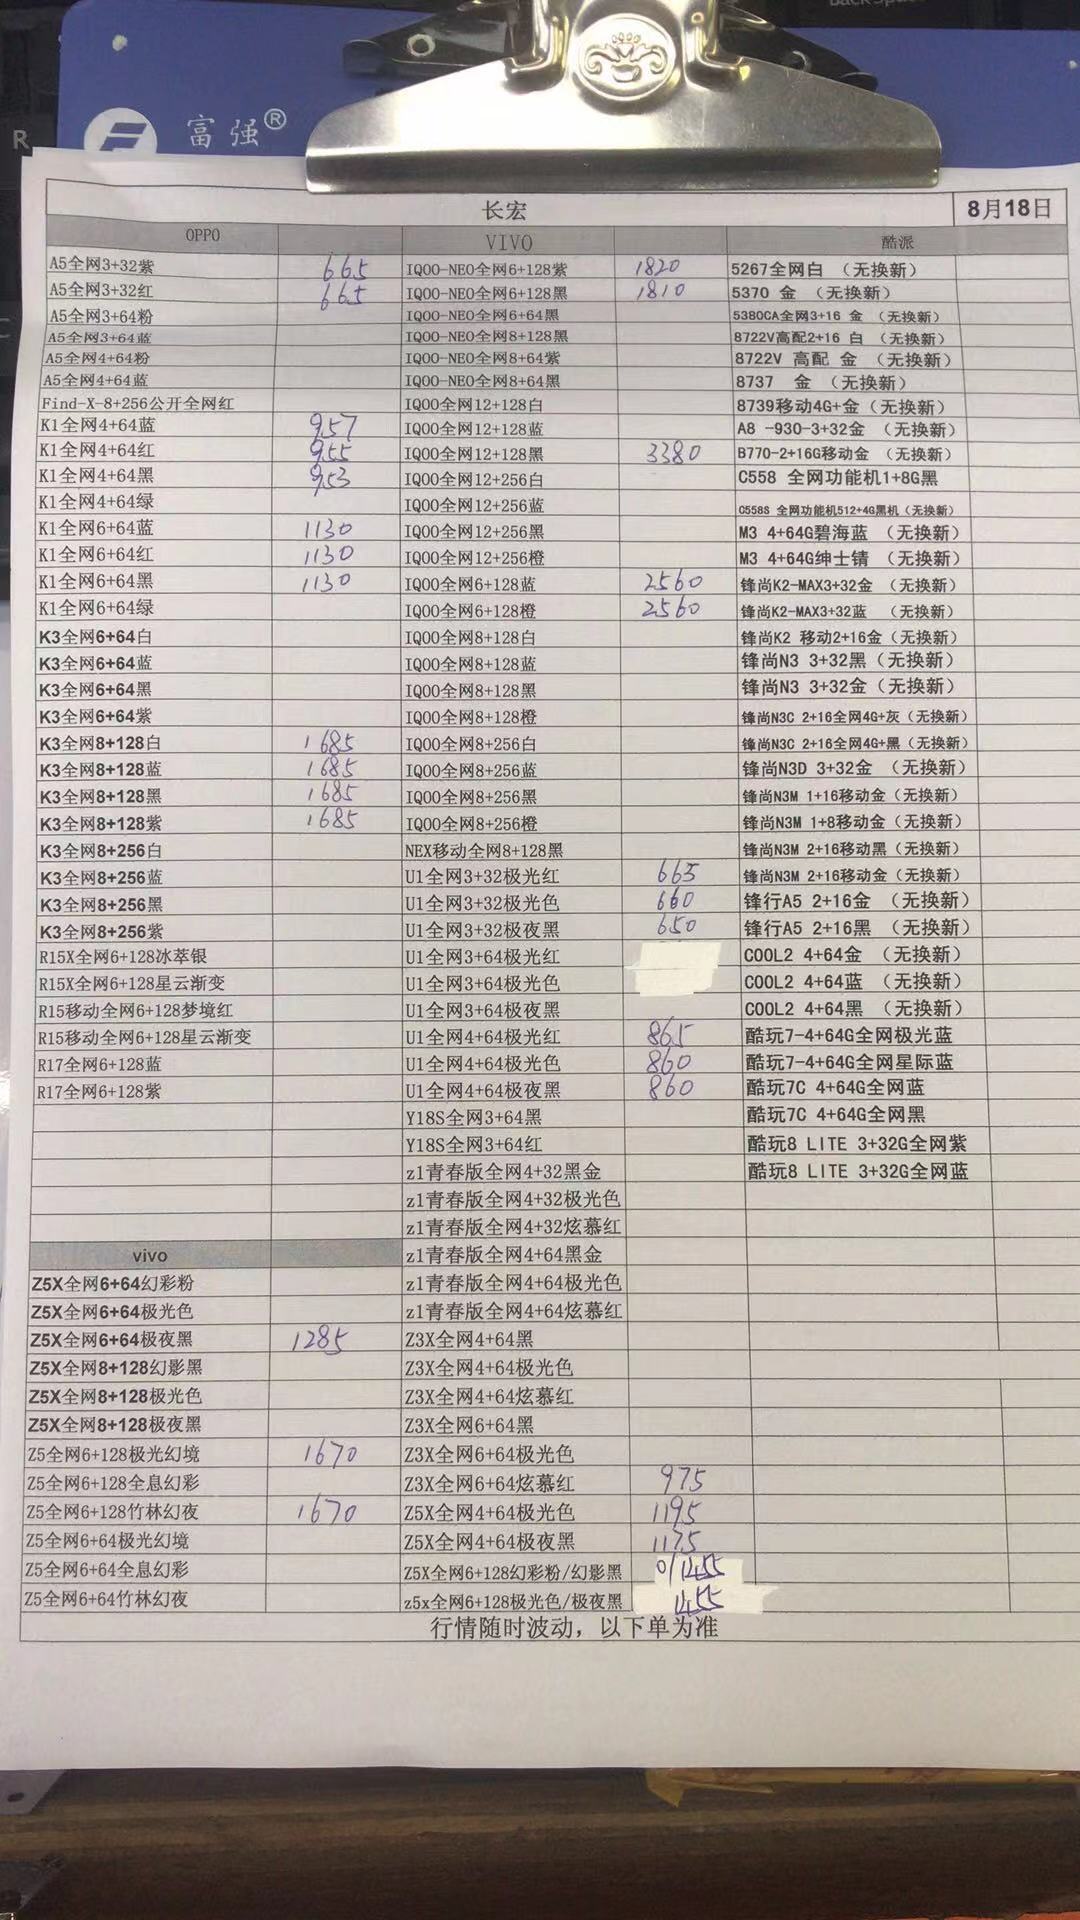 BackSpace
R
富强®
长宏 8月18日
OPPO VIVO 酷派
A5全网3+32紫 665 IQOO-NEO全网6+128紫 1820 5267全网白 （无换新）
A5全网3+32红 665 IQOO-NEO全网6+128黑 1810 5370 金 （无换新）
A5全网3+64粉 IQOO-NEO全网6+64黑 5380CA全网3+16 金 （无换新）
A5全网3+64蓝 IQOO-NEO全网8+128黑 8722V高配2+16 白 （无换新）
A5全网4+64粉 IQOO-NEO全网8+64紫 8722V 高配 金 （无换新）
A5全网4+64蓝 IQOO-NEO全网8+64黑 8737 金 （无换新）
Find-X-8+256公开全网红 IQOO全网12+128白 8739移动4G+金（无换新）
K1全网4+64蓝 957 IQOO全网12+128蓝 A8 -930-3+32金（无换新）
K1全网4+64红 955 IQOO全网12+128黑 3380 B770-2+16G移动金（无换新）
K1全网4+64黑 953 IQOO全网12+256白 C558 全网功能机1+8G黑
K1全网4+64绿 IQOO全网12+256蓝 C558S 全网功能机512+4G黑机（无换新）
K1全网6+64蓝 1130 IQOO全网12+256黑 M3 4+64G碧海蓝 （无换新）
K1全网6+64红 1130 IQOO全网12+256橙 M3 4+64G绅士锖 （无换新）
K1全网6+64黑 1130 IQOO全网6+128蓝 2560 锋尚K2-MAX3+32金 （无换新）
K1全网6+64绿 IQOO全网6+128橙 2560 锋尚K2-MAX3+32蓝 （无换新）
K3全网6+64白 IQOO全网8+128白 锋尚K2 移动2+16金（无换新）
K3全网6+64蓝 IQOO全网8+128蓝 锋尚N3 3+32黑（无换新）
K3全网6+64黑 IQOO全网8+128黑 锋尚N3 3+32金（无换新）
K3全网6+64紫 IQOO全网8+128橙 锋尚N3C 2+16全网4G+灰（无换新）
K3全网8+128白 1685 IQOO全网8+256白 锋尚N3C 2+16全网4G+黑（无换新）
K3全网8+128蓝 1685 IQOO全网8+256蓝 锋尚N3D 3+32金 （无换新）
K3全网8+128黑 1685 IQOO全网8+256黑 锋尚N3M 1+16移动金（无换新）
K3全网8+128紫 1685 IQOO全网8+256橙 锋尚N3M 1+8移动金（无换新）
K3全网8+256白 NEX移动全网8+128黑 锋尚N3M 2+16移动黑（无换新）
K3全网8+256蓝 U1全网3+32极光红 665 锋尚N3M 2+16移动金（无换新）
K3全网8+256黑 U1全网3+32极光色 660 锋行A5 2+16金 （无换新）
K3全网8+256紫 U1全网3+32极夜黑 650 锋行A5 2+16黑 （无换新）
R15X全网6+128冰萃银 U1全网3+64极光红 COOL2 4+64金 （无换新）
R15X全网6+128星云渐变 U1全网3+64极光色 COOL2 4+64蓝 （无换新）
R15移动全网6+128梦境红 U1全网3+64极夜黑 COOL2 4+64黑 （无换新）
R15移动全网6+128星云渐变 U1全网4+64极光红 865 酷玩7-4+64G全网极光蓝
R17全网6+128蓝 U1全网4+64极光色 860 酷玩7-4+64G全网星际蓝
R17全网6+128紫 U1全网4+64极夜黑 860 酷玩7C 4+64G全网蓝
Y18S全网3+64黑 酷玩7C 4+64G全网黑
Y18S全网3+64红 酷玩8 LITE 3+32G全网紫
z1青春版全网4+32黑金 酷玩8 LITE 3+32G全网蓝
z1青春版全网4+32极光色
z1青春版全网4+32炫慕红
vivo z1青春版全网4+64黑金
Z5X全网6+64幻彩粉 z1青春版全网4+64极光色
Z5X全网6+64极光色 z1青春版全网4+64炫慕红
Z5X全网6+64极夜黑 1285 Z3X全网4+64黑
Z5X全网8+128幻影黑 Z3X全网4+64极光色
Z5X全网8+128极光色 Z3X全网4+64炫慕红
Z5X全网8+128极夜黑 Z3X全网6+64黑
Z5全网6+128极光幻境 1670 Z3X全网6+64极光色
Z5全网6+128全息幻彩 Z3X全网6+64炫慕红 975
Z5全网6+128竹林幻夜 1670 Z5X全网4+64极光色 1195
Z5全网6+64极光幻境 Z5X全网4+64极夜黑 1175
Z5全网6+64全息幻彩 Z5X全网6+128幻彩粉/幻影黑 0/1455
Z5全网6+64竹林幻夜 z5x全网6+128极光色/极夜黑 1455
行情随时波动，以下单为准